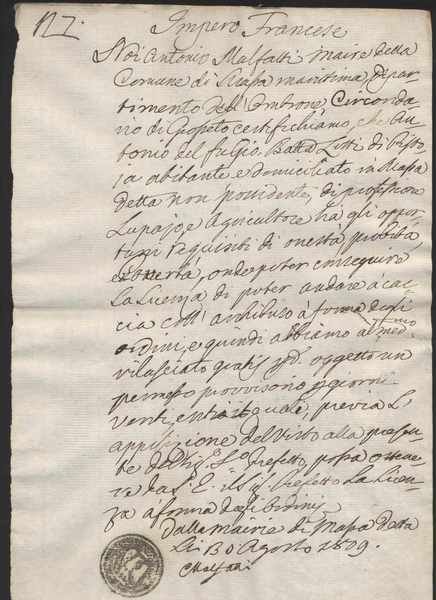 N 7.
Impero Francese
Noi Antonio Malfatti Maire della
Comune di Massa marittima, Dipar-
timento dell'Ombrone, Circonda-
rio di Grosseto certifichiamo, che An-
tonio del fu Gio. Batta Litti di
abitante e domiciliato in Massa
detta non possidente, di professione
Agricoltore ha gli oppor-
tuni requisiti di onestà, probità,
onde poter conseguire
la Licenza di poter andare a cac-
cia coll' archibuso à forma degli
ordini, e quindi abbiamo al medmo
rilasciato gratis pd. oggetto un
permesso provvisorio p giorni
venti, entro i quali, previa l'
apposizione del Visto alla presen-
te del Sig. Prefetto, possa ottene-
re da S. E. il Sig. Prefetto la Licen-
za à forma degli Ordini
Dalla Mairie di Massa detta
Li 30 Agosto 1809.
Malfatti